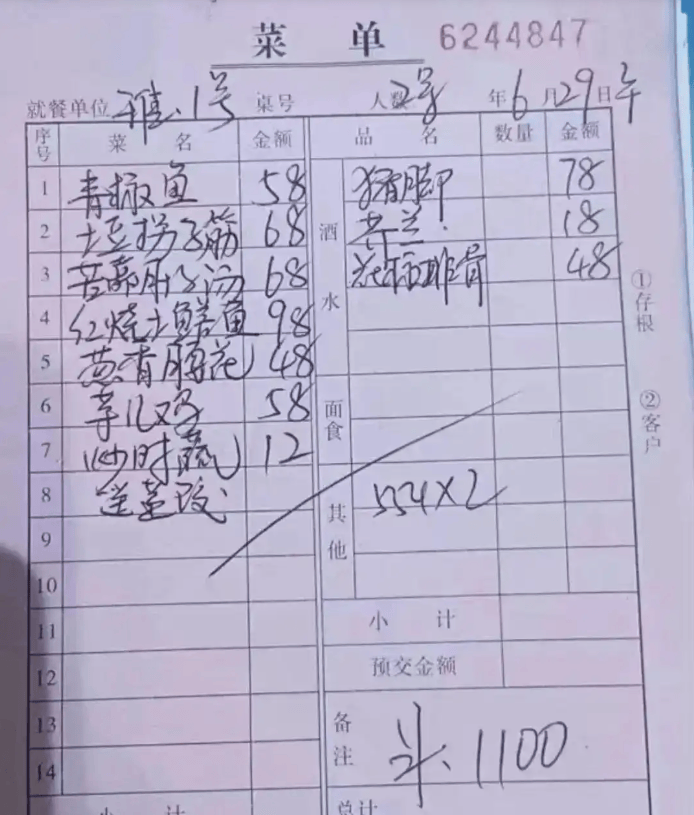 菜 单 6244847
就餐单位 雅. 1号 桌号 人数 2号 年 6 月 29 日 午
序号 菜 名 金额 品 名 数量 金额
1 青椒鱼 58 猪脚 78
2 土豆拐子筋 68 芥兰 18
3 肝子汤 68 排骨 48
4 红烧土鳝鱼 98
5 葱香腰花 48
6 芋儿鸡 58
7 炒时蔬 12
8 送
9
10
11
12
13
14
酒水
面食
其他 554×2
小 计
预交金额
备注 斗. 1100
小 计 总计
①存根
②客户